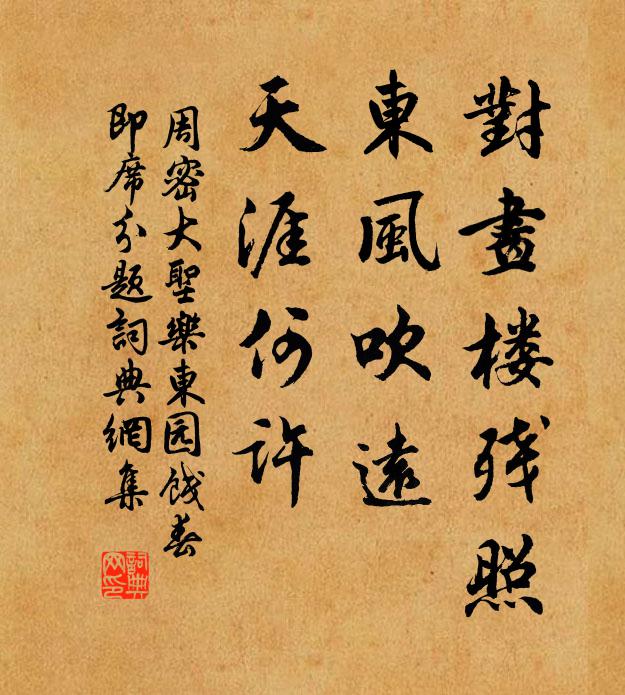 對畫楼残照
東風吹遠
天涯何許
周密大聖樂東园餞春
即席分題詞典網集
詞典
网印